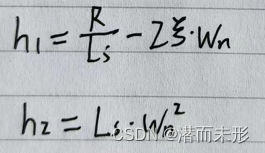 h₁ = R/Ls - 2ξ·Wn
h₂ = Ls·Wn²
CSDN @潜而未形